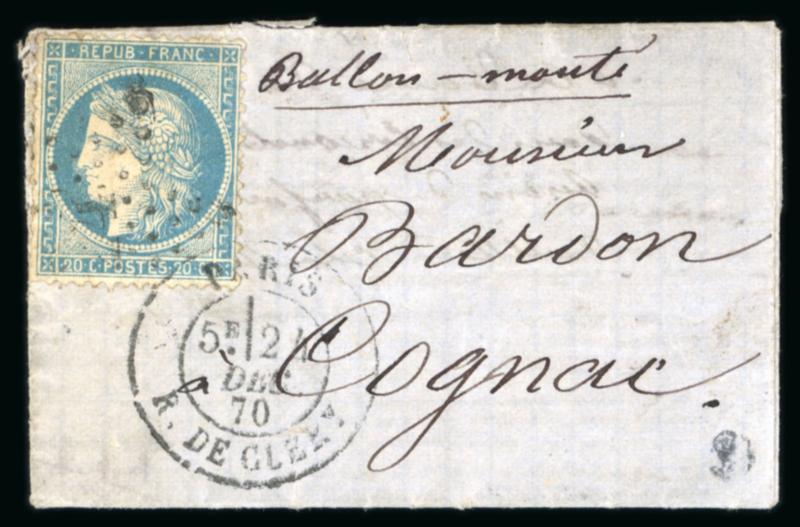 REPUB · FRANC ·
20 C · POSTES · 20 C
Ballon - monté
Monsieur
Bardon
à Cognac.
PARIS
5E 24
DEC
70
R. DE CLERY